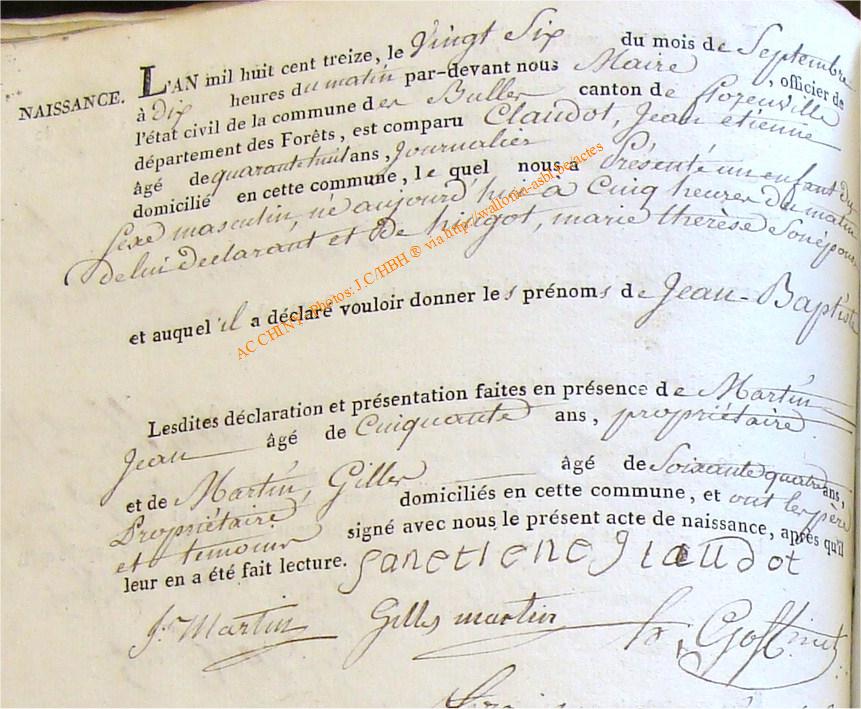 NAISSANCE. L'AN mil huit cent treize, le Vingt Six du mois de Septembre
à dix heures du matin par-devant nous Maire , officier de
l'état civil de la commune des Bulles canton de florenville
département des Forêts, est comparu Claudot, Jean etienne
âgé de quarante huit ans, Journalier
domicilié en cette commune, le quel nous a Présenté un enfant du
Sexe masculin, né aujourd'hui à Cinq heures du matin
de lui déclarant et de hingot, marie thérèse Son épouse
et auquel il a déclaré vouloir donner les prénoms de Jean-Baptiste
AC CHINY Photos: J.C/HBH ® via http://wallonia-asbl.be/actes
Lesdites déclaration et présentation faites en présence de Martin
Jean âgé de Cinquante ans, propriétaire
et de Martin, Gilles âgé de Soixante quatre ans,
Propriétaire domiciliés en cette commune, et ont les père
et temoins signé avec nous le présent acte de naissance, après qu'il
leur en a été fait lecture. Janetiene Jlaudot
J. Martin Gilles martin